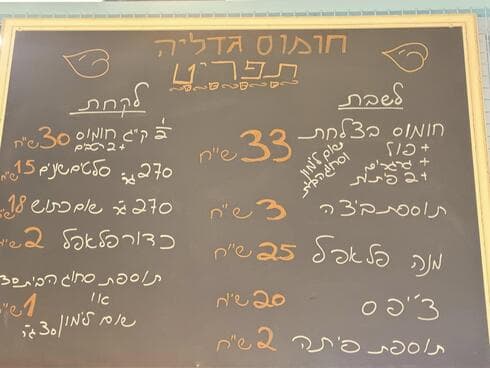 חומוס גדליה
תפריט
לשבת
חומוס בצלחת 33 ש"ח
+ פול
+ גרגרים
+ 2 פיתות
שום לימון
וסחוג הבית
תוספת ביצה 3 ש"ח
מנה פלאפל 25 ש"ח
צ'יפס 20 ש"ח
תוספת פיתה 2 ש"ח
לקחת
½ ק"ג חומוס 30 ש"ח
+ 2
270 גר' סלטים שונים 15 ש"ח
270 גר' שום כתוש 18 ש"ח
כדור פלאפל 2 ש"ח
תוספת סחוג הבית 30
או 1 ש"ח
שום לימון 30 גר'